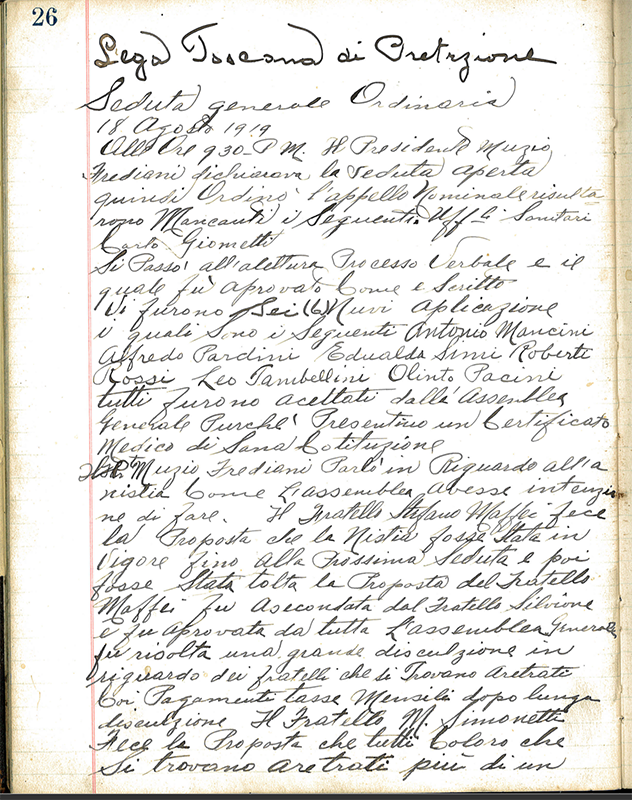 26
Lega Toscana di Pretezione
Seduta generale Ordinaria
18 Agosto 1919
Alle Ore 930 P M. Il Presidente Muzio
Frediani dichiarava la seduta aperta
quindi Ordino l'appello Nominale risulta
rono Mancanti i Seguenti. Uff-li Sanitari
Carlo Giometti
Si Passo' all'alettura Processo Verbale e il
quale fu' aprovato Come e Scritto
Vi furono Sei (6) Nuvi aplicazione
i quali Sono i Seguenti Antonio Mancini
Alfredo Pardini Edualdo Simi Roberti
Rossi Leo Tambellini Olinto Pacini
tutti furono acettati dalla Assemblea
Generale Purche' Presentino un Certificato
Medico di Sana Cotituzione
Muzio Frediani Parlo' in Riguardo all'a
nistia Come L'assemblea avesse intenzio
ne di fare. Il Fratello Stefano Maffei fece
la Proposta che la Nistia fosse Stata in
Vigore fino alla Prossima Seduta e poi
fosse Stata tolta la Proposta del Fratello
Maffei fu Asecondata dal Fratello Silvione
e fu Aprovata da tutta L'assemblea Generale
fu risolta una grande disculzione in
riguardo dei fratelli che si Trovano Aretrati
Coi Pagamenti tasse Mensili dopo lunga
disculzione Il Fratello M. Simonetti
Fece la Proposta che tutti Coloro che
Si trovano aretrati più di un